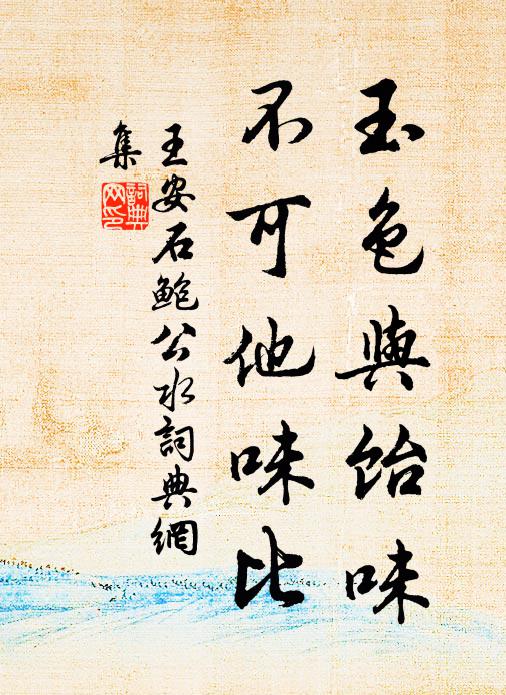 玉色與飴味
不可他味比
王安石鮑公水詞典網
集
詞典
网印